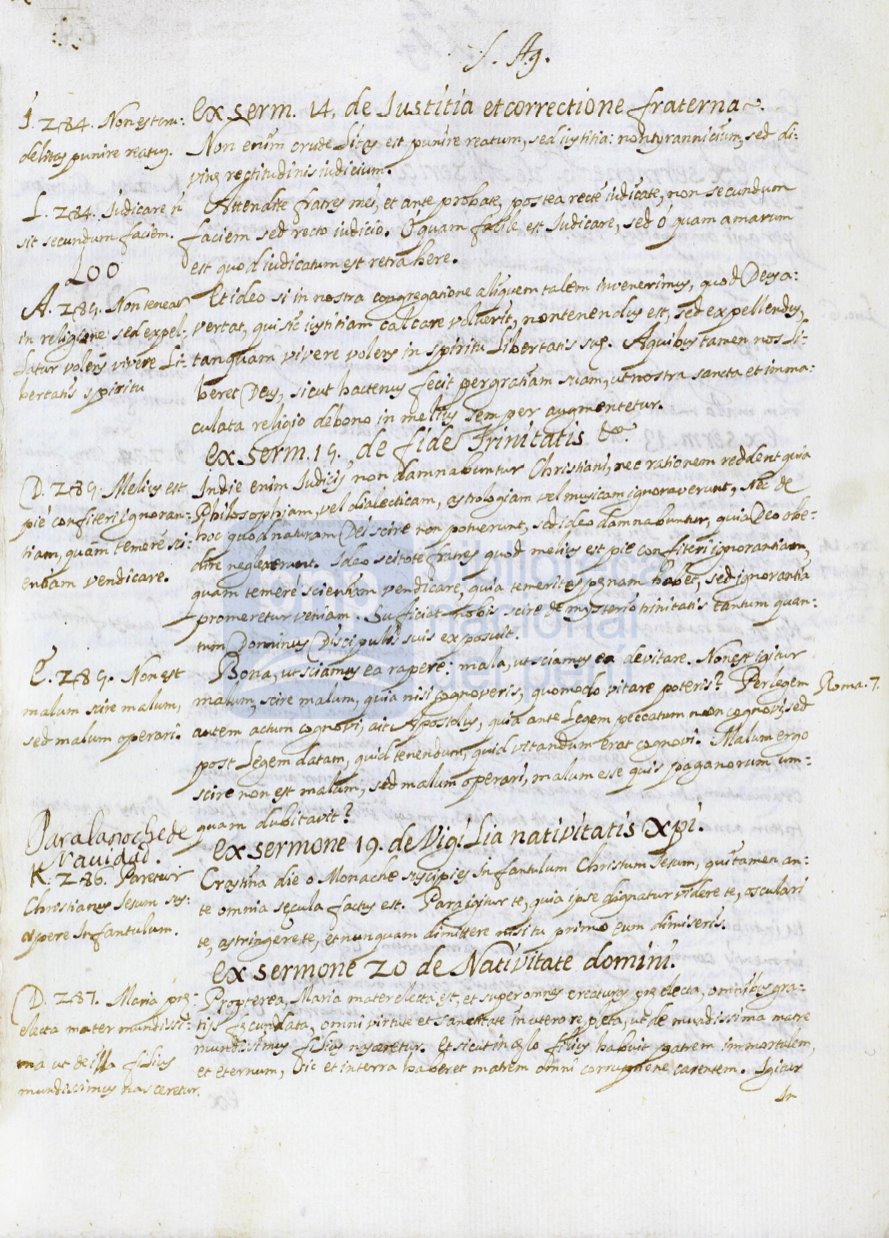 S. Ag.
Ex serm. 14. de Iustitia et correctione fraterna.
I. 284. Non est cru:
delitas punire reatus.
Non enim crudelitas est punire reatum, sed iustitia: non tyrannicium, sed di:
vinę rectitudinis iudicium.
L. 284. Iudicare ñ
sit secundum faciem.
Attendite fratres mei, et ante probate, postea recte iudicate, non secundum
faciem sed recto iudicio. O quam facile est Iudicare, sed o quam amarum
est quod iudicatum est retrahere.
200
A. 285. Non teneat
in religione sed expel:
latur volens vivere li:
bertatis spiritu
Et ideo si in nostra congregatione aliquem talem invenerimus, quod Deus a:
vertat, qui sic iustitiam calcare voluerit, non tenendus est, sed expellendus,
tanquam vivere volens in spiritu libertatis suę. A quibus tamen nos li:
beret Deus, sicut hactenus fecit per gratiam suam, ut nostra sancta et imma:
culata religio de bono in melius semper augmentetur.
Ex serm. 15. de fide Trinitatis &c.
D. 285. Melius est
pie confiteri ignoran:
tiam, quam temere sci:
entiam vendicare.
In die enim Iudicii non damnabuntur Christiani, nec rationem reddent quia
Philosophiam, vel dialecticam, astrologiam vel musicam ignoraverunt, Nec de
hoc quod naturam Dei scire non potuerunt, sed ideo damnabuntur, quia Deo obe:
dire neglexerunt. Ideo scitote fratres quod melius est pie confiteri ignorantiam,
quam temere scientiam vendicare, quia temeritas pęnam habet, sed ignorantia
promeretur veniam. Sufficiat nobis scire de mysterio trinitatis tantum quan:
tum Dominus Discipulis suis exposuit.
E. 285. Non est
malum scire malum,
sed malum operari.
Bona, ut sciamus ea rapere; mala, ut sciamus ea devitare. Non est igitur
malum, scire malum, quia nisi cognoveris, quomodo vitare poteris? Per legem
Roma. 7.
autem actum cognovi, ait Apostolus, quia ante Legem peccatum non cognovi, sed
post Legem datam, quid tenendum, quid vitandum erat cognovi. Malum ergo
scire non est malum, sed malum operari, malum esse quis paganorum um=
quam dubitavit?
Para la noche de
Navidad.
Ex sermone 19. de Vigilia nativitatis Xpi.
K. 286. Paretur
Christianus Iesum sus:
cipere Infantulum.
Crastina die o Monache suscipies Infantulum Christum Iesum, qui tamen an:
te omnia sęcula factus est. Para igitur te, quia ipse dignatur videre te, osculari
te, astringere te, et nunquam dimittere nisi tu primo eum dimiseris.
Ex sermone 20 de Nativitate domini.
D. 287. Maria prę:
electa mater mundissi:
ma ut de illa filius
mundissimus nasceretur.
Propterea, Maria mater electa est, et super omnes creaturas prę electa, omnibus gra:
tijs fęcundata, omni virtute et sanctitate in utero repleta, ut de mundissima matre
mundissimus filius nasceretur. Et sicut in cęlo filius habuit patrem immortalem,
et eternum, sic et in terra haberet matrem omni corruptione carentem. Igitur
In
biblioteca
nacional
del perú